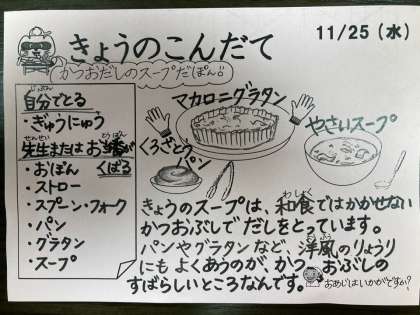 きょうのこんだて
11/25（水）
かつおだしのスープだぽん♫
自分でとる
・ぎゅうにゅう
先生または お当番が
くばる
・おぼん
・ストロー
・スプーン・フォーク
・パン
・グラタン
・スープ
マカロニグラタン
くろざとう
パン
やさいスープ
きょうのスープは、和食ではかかせない
かつおぶしで だしをとっています。
パンやグラタンなど、洋風のりょうり
にも よくあうのが、かつおぶしの
すばらしいところなんです。
おあじはいかがですか？